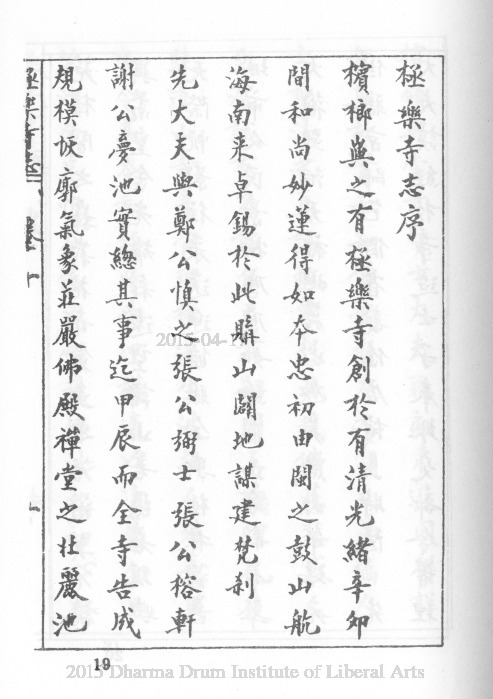 極樂寺志序
檳榔輿之有極樂寺創於有清光緒辛卯
間和尚妙蓮得如本忠初由閩之鼓山航
海南来卓錫於此購山闢地謀建梵刹
先大夫與鄭公慎之張公弼士張公榕軒
謝公夢池實總其事迄甲辰而全寺告成
規模恢廓氣象莊嚴佛殿禪堂之壯麗池
極樂寺志
19
2015 Dharma Drum Institute of Liberal Arts